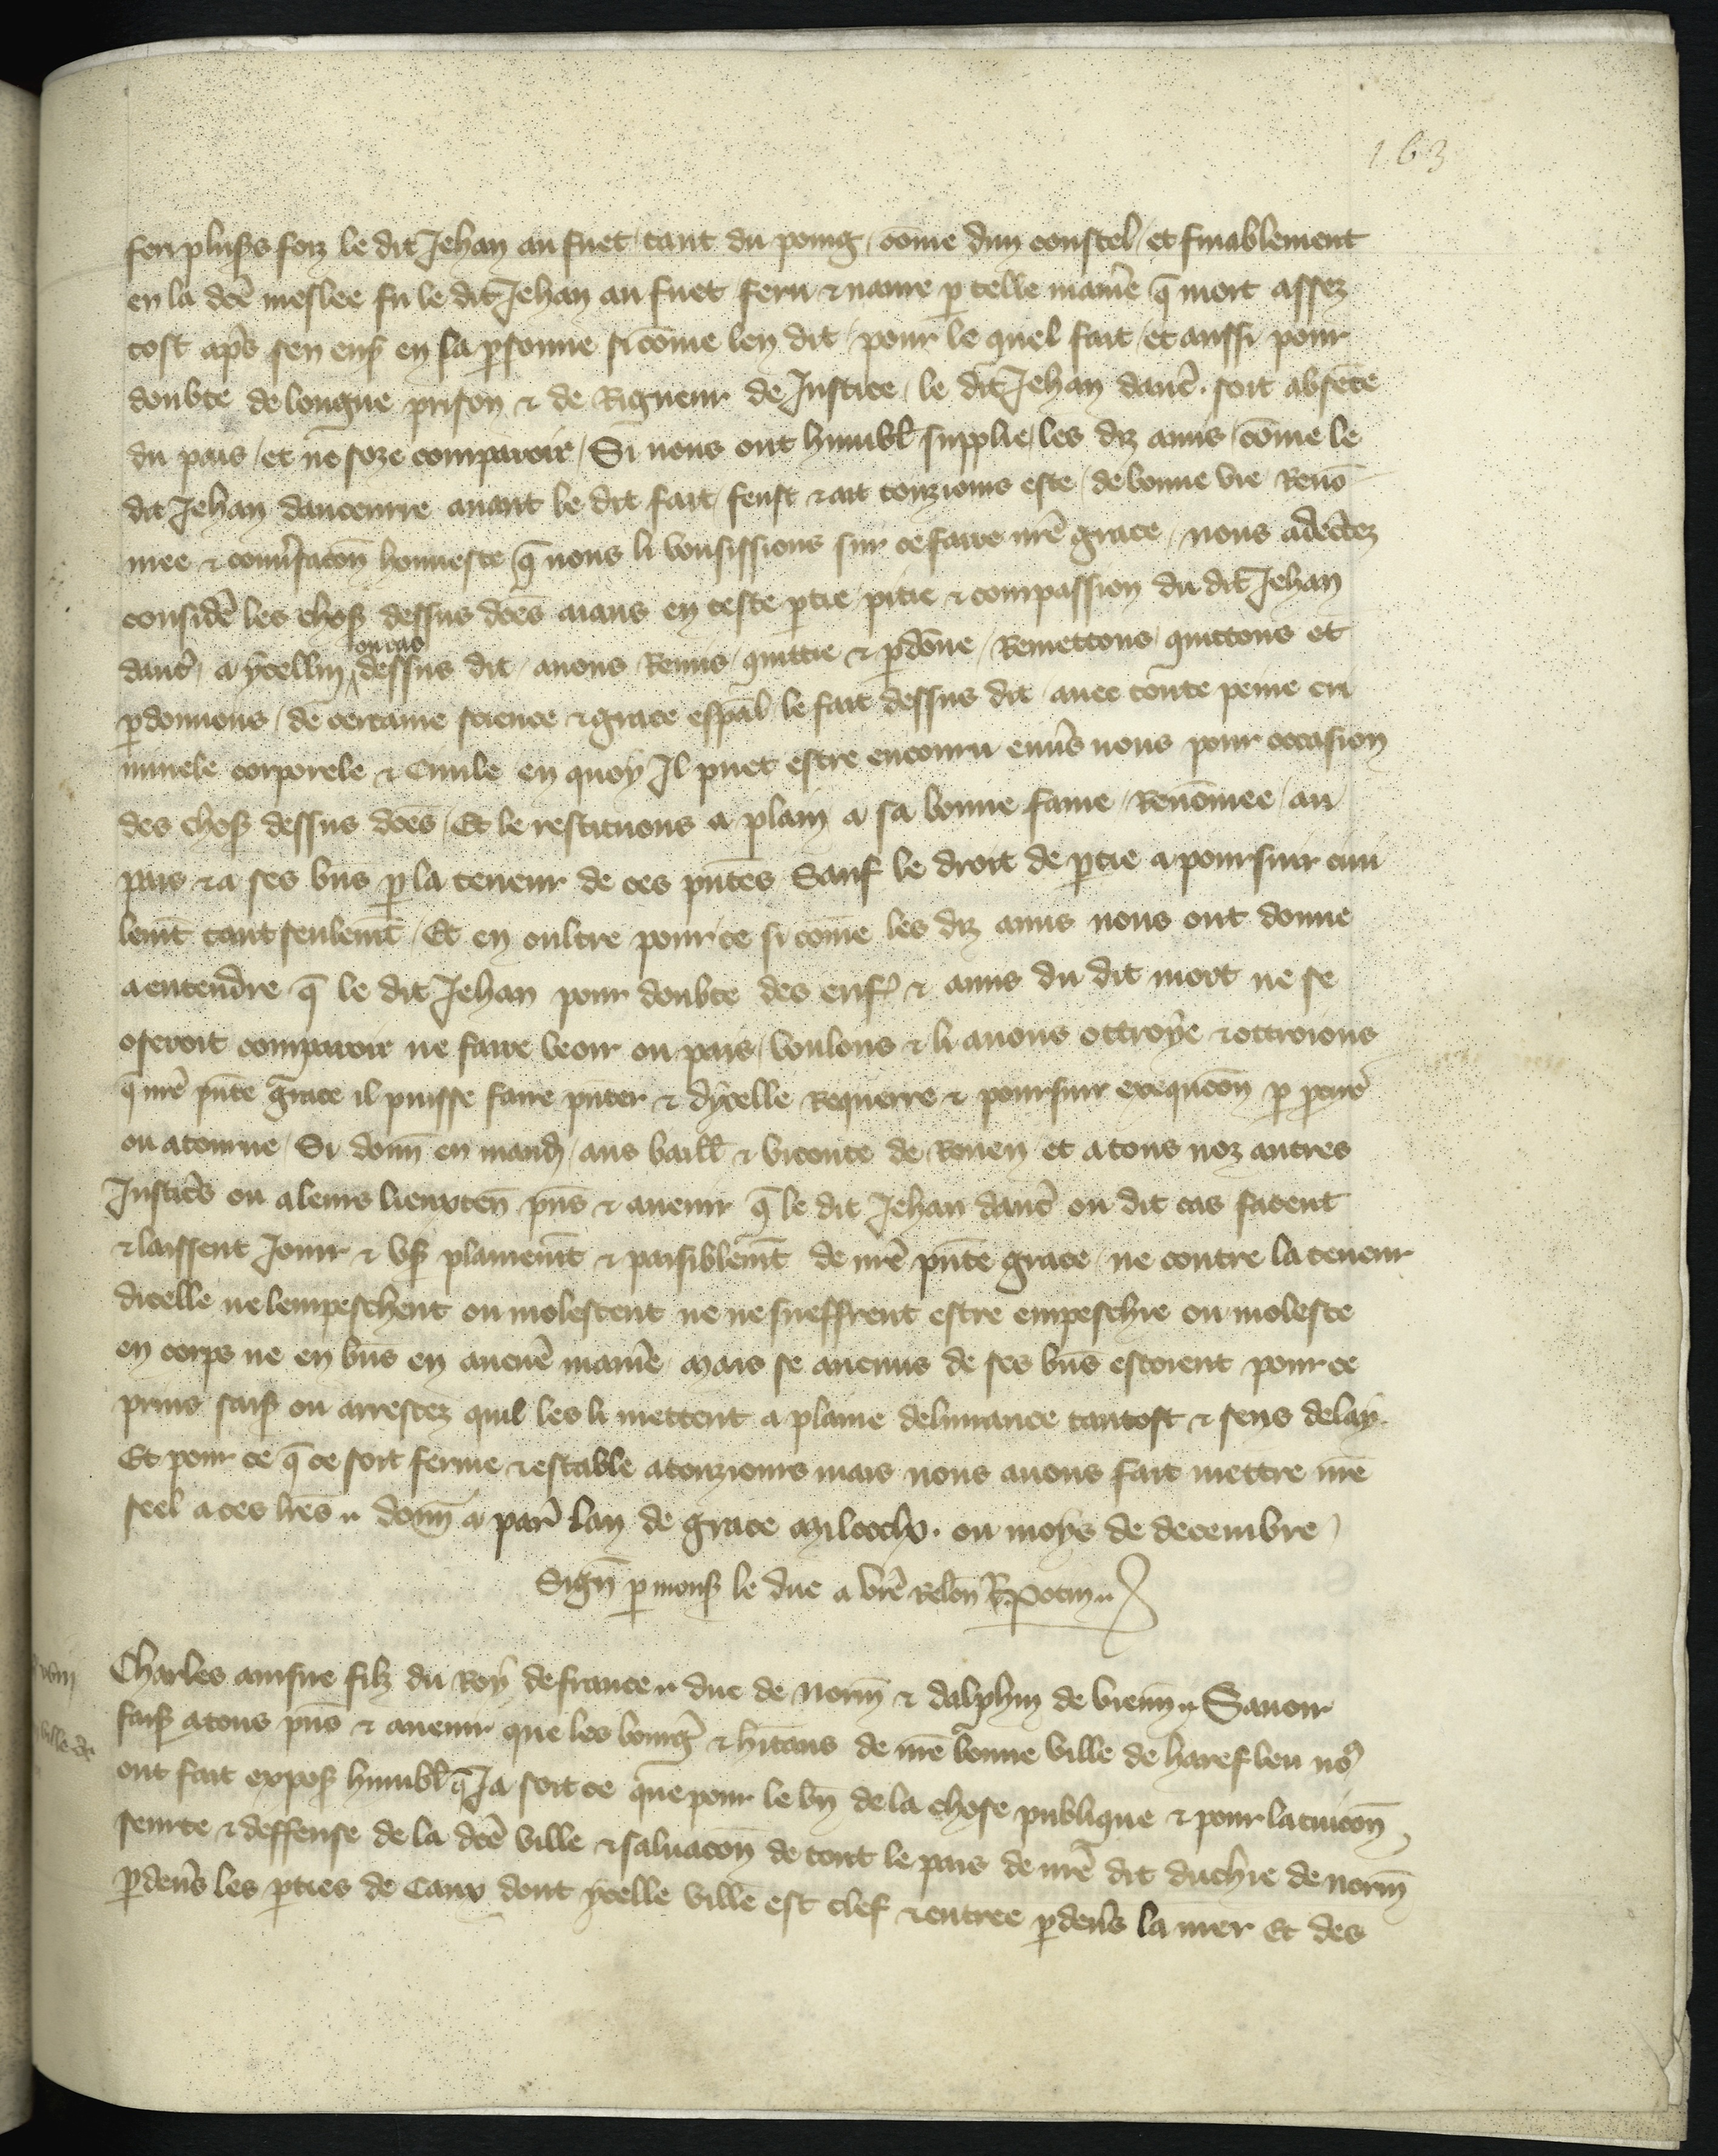 163
feri plusrs foiz le dit Jehan au fuet / tant du poing / cōme dun coustel / et finablement
en la dcē meslee fu le dit Jehan au fuet feru ⁊ naure p̲ telle maniē q̄ mort assez
tost ap̄s sen ensꝭ en sa p̲sonne si cōme len dit / pour le quel fait / et aussi pour
doubte de longue prison ⁊ de Rigueur de Justice / le dit Jehan dauc̄ . soit absēte
du pais / et ne soze comparoir / Si nous ont humbl̄ supplie / les diz amis / cōme le
dit Jehan dauceurre auant le dit fait / feust ⁊ ait touzious este / de bonne vie Renō
mee ⁊ conūsacōn honneste q̄ nous li vousissions sur ce faire nrē grace / nous adectez
considē les chosꝭ dessus dcēs aians en ceste p̲tie pitie ⁊ compassion du dit Jehan
ou cas
dauc̄ / a ycellui dessus dit / auons Remis / quittie ⁊ p̲dōne / Remettons / quittons et
p̲donnons / de certaine science ⁊ grace esp̄al le fait dessus dit / auec toute peine cri
minele corporele ⁊ Ciuile en quoy Il puet estre encouru enūs nous pour occasion
des chosꝭ dessus dcēs / Et le restituons a plain a sa bonne fame / Renōmee / au
pais ⁊ a ses biēs p̲ la teneur de ces pn̄tes Sauf le droit de p̲tie a poursuir ciui
lemt̄ tant seulemt̄ / Et en oultre pource si cōme les diz amis nous ont donne
a entendre q̄ le dit Jehan pour doubte des enfꝭ ⁊ amis du dit mort ne se
oseroit comparoir ne faire veoir ou pais / voulons ⁊ li auons ottroye ⁊ ottroions
q̄ nrē pn̄te grace il puisse faire pn̄ter ⁊ dycelle Requerre ⁊ poursuir exequcōn p̲ p̲cur̄
ou atourne / Si donn̄ en mandꝭ / aus baill̄ ⁊ viconte de Rouen et a tous noz autres
Justic̄s ou a leurs lieuxten̄ pn̄s ⁊ auenir q̄ le dit Jehan dauc̄ ou dit cas facent
⁊ laissent Jouir ⁊ vsꝭ plainemt̄ ⁊ paisiblemt̄ de nrē pn̄te grace / ne contre la teneur
dicelle ne lempeschent ou molestent ne ne sueffrent estre empeschie ou moleste
en corps ne en biēs en aucūe maniē / mais se aucuns de ses biēs estoient pour ce
prins saisꝭ ou arrestez quil les li mettent a plaine deliurance tantost ⁊ sens delay .
Et pour ce q̄ ce soit ferme ⁊ estable a touziours mais nous auons fait mettre nrē
seel a ces lrēs .. donn̄ a par̄ lan de grace mil ccclv . ou moys de decembre
Sign̄ p̲ monsꝭ le duc a vrē Relōn P. Potin ..
Charles ainsne filz du Roy de france .. duc de Norm̄ ⁊ dalphin de vienn̄ .. Sauoir
faisꝭ a tous pn̄s ⁊ auenir que les bourgꝭ ⁊ hītans de nrē bonne ville de harefleu nous
ont fait exposꝭ humbl̄ q̄ Ja soit ce que pour le bn̄ de la chose publique ⁊ pour la tuicōn
seurte ⁊ deffense de la dcē ville ⁊ saluacōn de tout le pais de nrē dit duchie de norm̄
p̲ deūs les p̲ties de Caux dont ycelle ville est clef ⁊ entree p̲ deūs la mer Et des
ville de